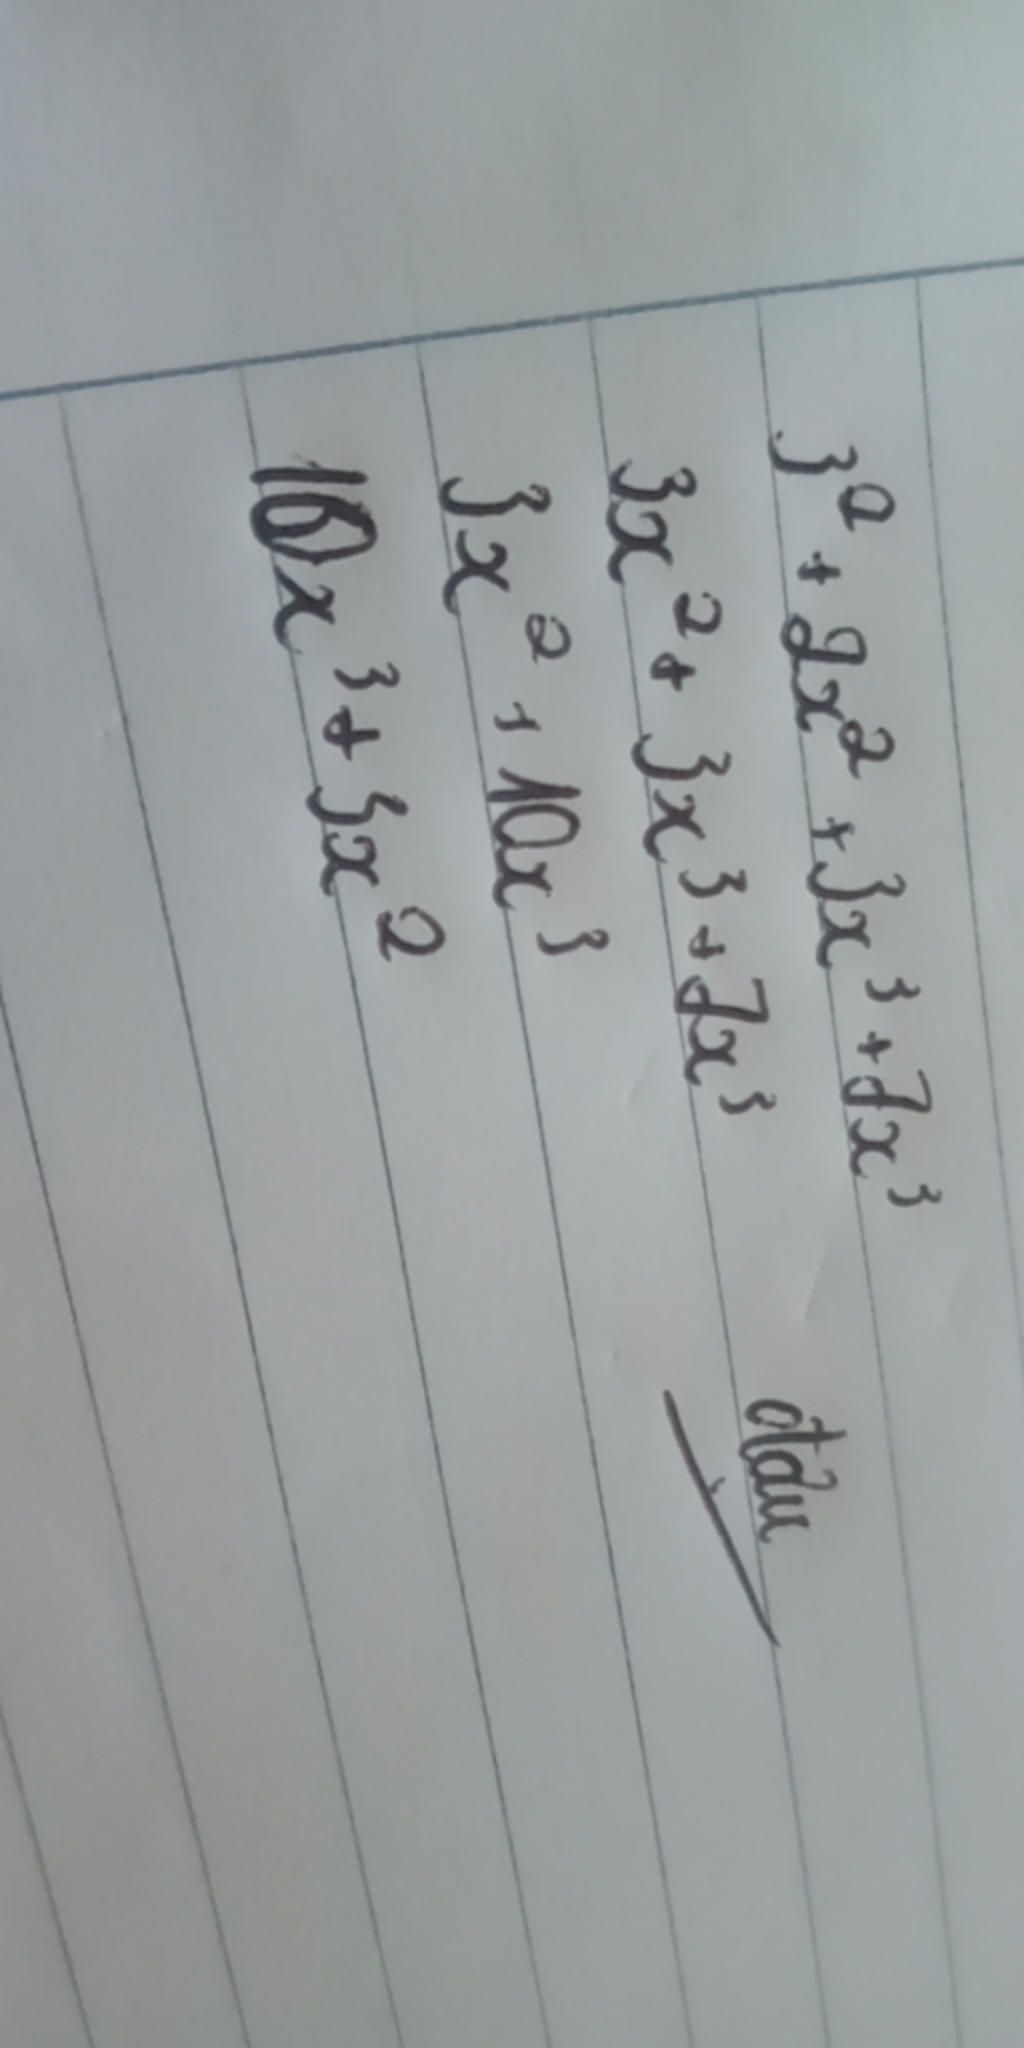 3² + 2x² + 3x³ + 7x³
3x² + 3x³ + 7x³
3x² + 10x³
10x³ + 3x²